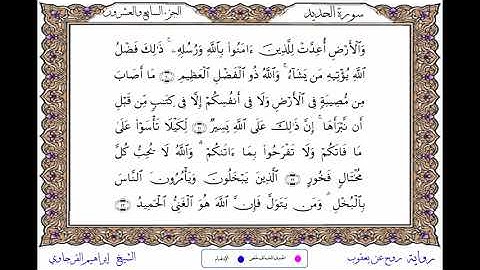 سورة الحديد
الجزء السابع والعشرون
وَٱلۡأَرۡضِ أُعِدَّتۡ لِلَّذِينَ ءَامَنُواْ بِٱللَّهِ وَرُسُلِهِۦۚ ذَٰلِكَ فَضۡلُ
ٱللَّهِ يُؤۡتِيهِ مَن يَشَآءُۚ وَٱللَّهُ ذُو ٱلۡفَضۡلِ ٱلۡعَظِيمِ مَآ أَصَابَ
مِن مُّصِيبَةٖ فِي ٱلۡأَرۡضِ وَلَا فِيٓ أَنفُسِكُمۡ إِلَّا فِي كِتَٰبٖ مِّن قَبۡلِ
أَن نَّبۡرَأَهَآۚ إِنَّ ذَٰلِكَ عَلَى ٱللَّهِ يَسِيرٞ لِّكَيۡلَا تَأۡسَوۡاْ عَلَىٰ
مَا فَاتَكُمۡ وَلَا تَفۡرَحُواْ بِمَآ ءَاتَىٰكُمۡۗ وَٱللَّهُ لَا يُحِبُّ كُلَّ
مُخۡتَالٖ فَخُورٍ ٱلَّذِينَ يَبۡخَلُونَ وَيَأۡمُرُونَ ٱلنَّاسَ
بِٱلۡبُخۡلِۗ وَمَن يَتَوَلَّ فَإِنَّ ٱللَّهَ هُوَ ٱلۡغَنِيُّ ٱلۡحَمِيدُ
رواية روح عن يعقوب
الإدغام
الشيخ إبراهيم الفرجاوي